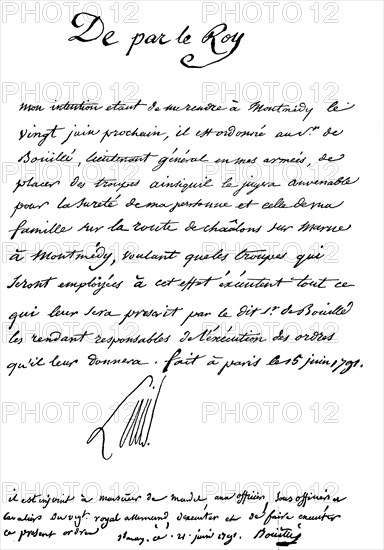 De par le Roy
mon intention etant de me rendre à Montmédy le
vingt juin prochain, il est ordonné au Sr. de
Boüillé, lieutenant général en mes armées, de
placer des troupes ainsi quil le jugera convenable
pour la sureté de ma personne et celle de ma
famille sur la route de chaâlons sur Marne
à Montmédy, voulant que les troupes qui
seront employées à cet effet éxécutent tout ce
qui leur sera prescrit par le dit Sr. de Bouillé
les rendant responsables de l'éxécution des ordres
qu'il leur donnera. fait à paris le 15 juin 1791.
Louis
il est enjoint à monsieur de mandel aux officiers, sous officiers et
cavaliers du regt. royal allemand, d'executer et de faire executer
ce present ordre à ce 21 juin 1791. Bouillé
PHOTO 12